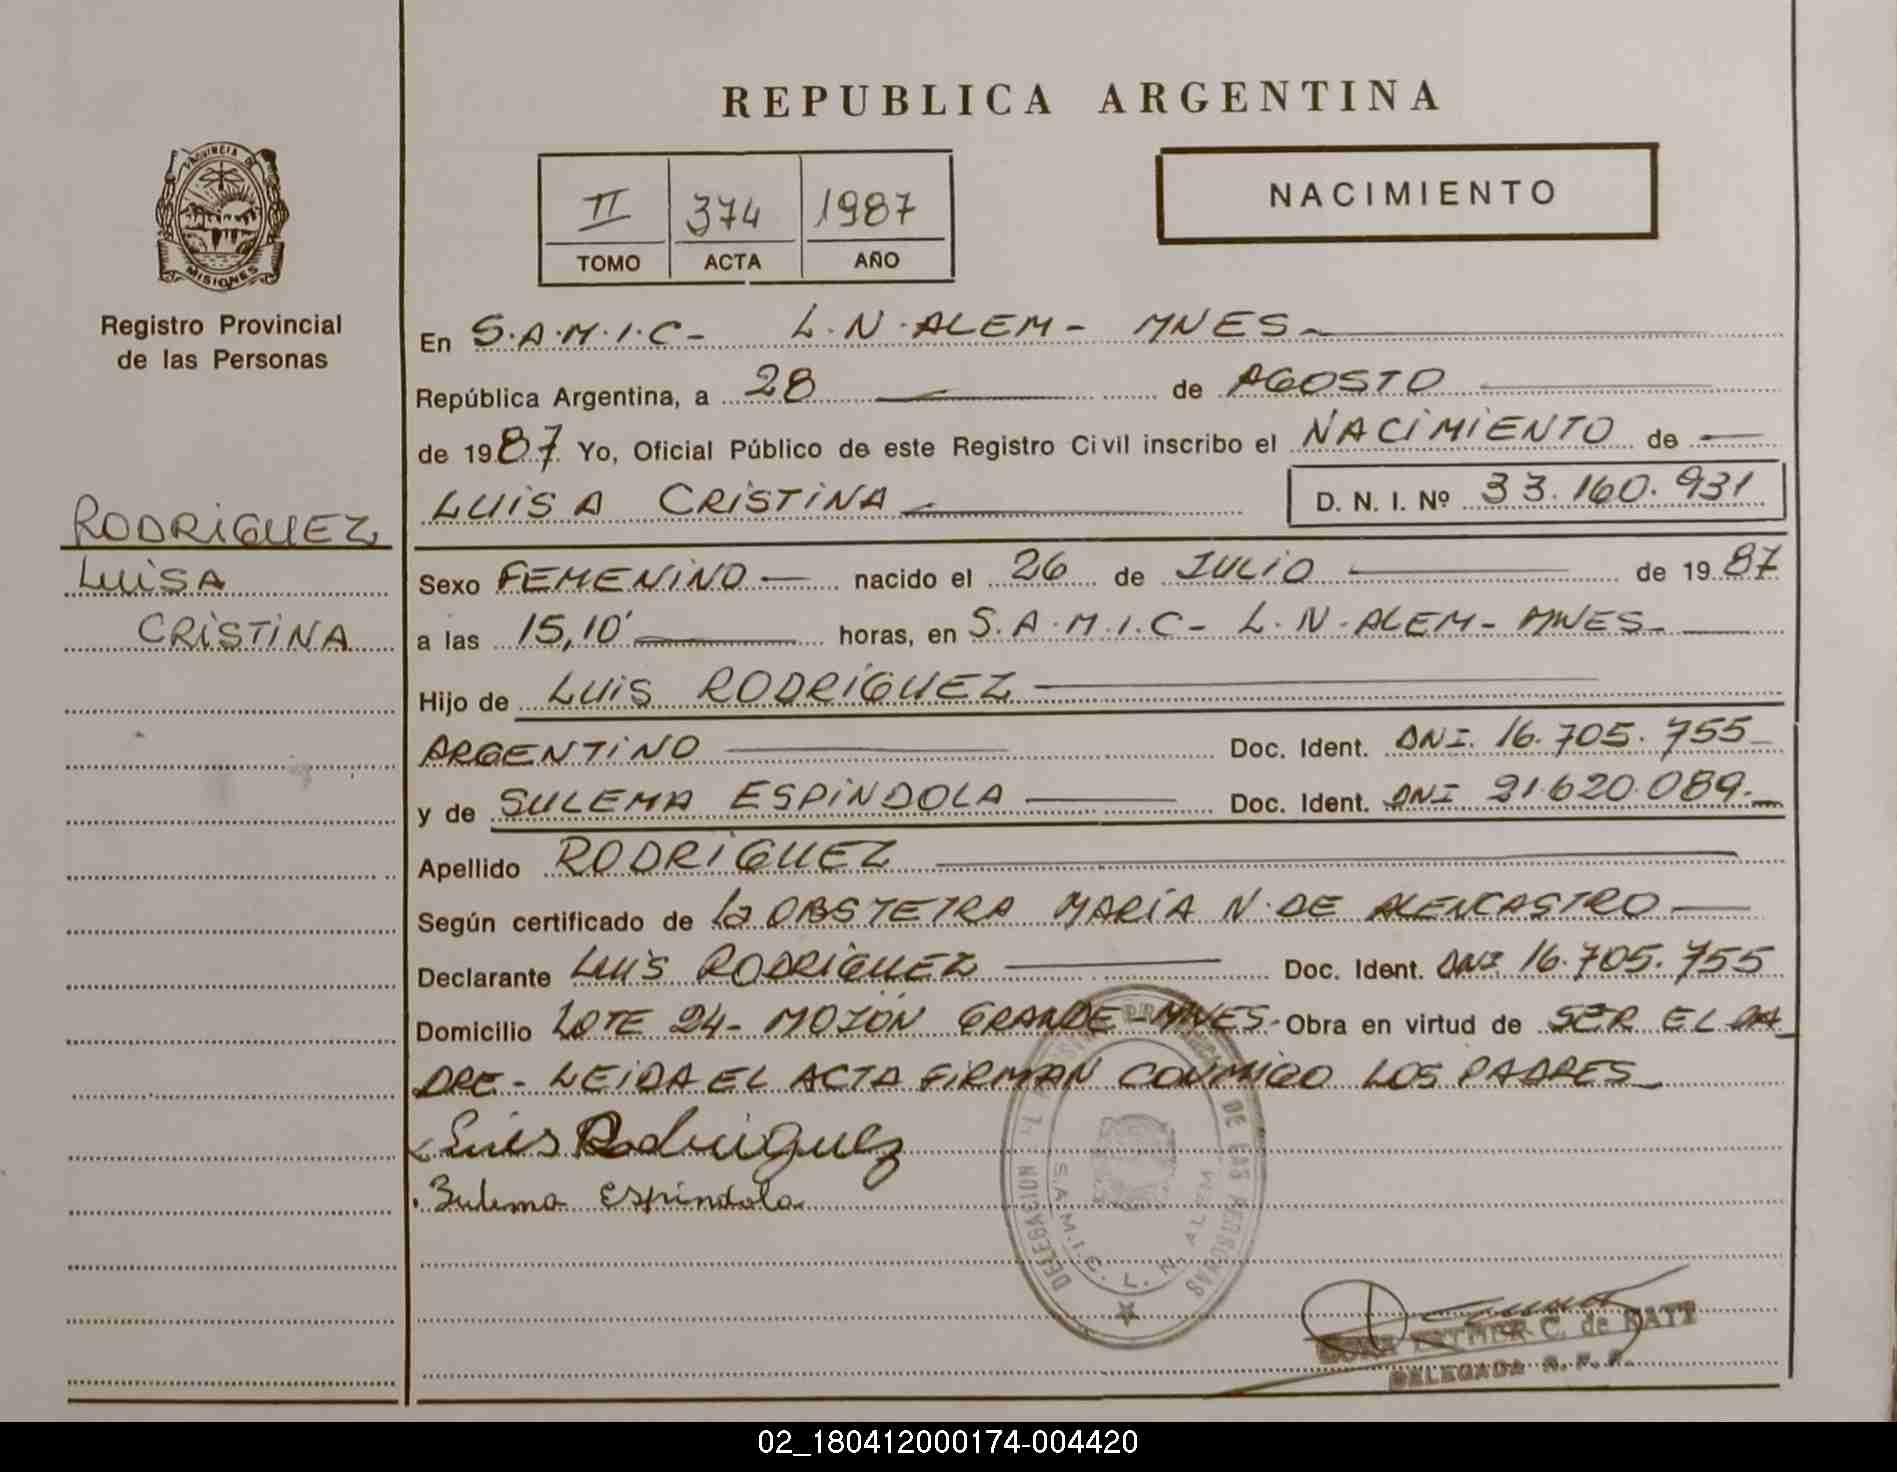 REPUBLICA ARGENTINA
PROVINCIA DE
MISIONES
Registro Provincial
de las Personas
II 374 1987
TOMO ACTA AÑO
NACIMIENTO
En S.A.M.I.C- L.N.ALEM- MNES-
República Argentina, a 28 de AGOSTO
de 1987 Yo, Oficial Público de este Registro Civil inscribo el NACIMIENTO de
LUISA CRISTINA D. N. I. Nº 33.160.931
RODRIGUEZ
LUISA
CRISTINA
Sexo FEMENINO nacido el 26 de JULIO de 1987
a las 15,10' horas, en S.A.M.I.C- L.N.ALEM- MNES-
Hijo de LUIS RODRIGUEZ
ARGENTINO Doc. Ident. DNI. 16.705.755
y de SULEMA ESPINDOLA Doc. Ident. DNI 21.620.089.
Apellido RODRIGUEZ
Según certificado de La OBSTETRA MARIA N. DE ALENCASTRO
Declarante LUIS RODRIGUEZ Doc. Ident. DNI 16.705.755
Domicilio LOTE 24- MOJON GRANDE-MNES- Obra en virtud de SER EL PA
DRE- LEIDA EL ACTA FIRMAN CONMIGO LOS PADRES
Luis Rodriguez
Zulema Espindola
DELEGACION DE LAS PERSONAS
S.A.M.I.C. L. N. ALEM
ESTHER C. de
DELEGADA R. P. P.
02_180412000174-004420